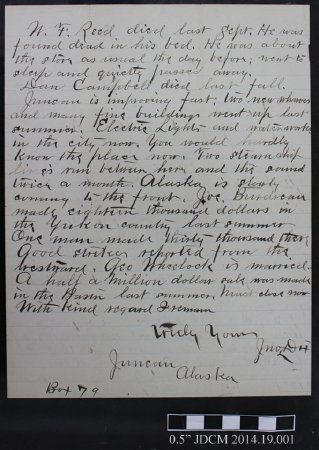 W. F. Reed died last Sept. He was
found dead in his bed. He was about
the store as usual the day before, went to
sleep and quietly passed away.
Dan Campbell died last fall.
Juneau is improving fast, two new wharves
and many fine buildings went up last
summer. Electric Lights and water works
in the city now. You would hardly
know the place now. Two steam ship
lines run between here and the sound
twice a month. Alaska is slowly
coming to the front. Joe. Burdreau
made eighteen thousand dollars in
the Yukon country last summer
One man made thirty thousand there
Good strikes reported from the
westward. Geo Wheelock is married.
A half a million dollar sale was made
in the Basin last summer. Must close now
With kind regard I remain
Truly Yours
Juneau
Alaska
Box 79
0.5" JDCM 2014.19.001